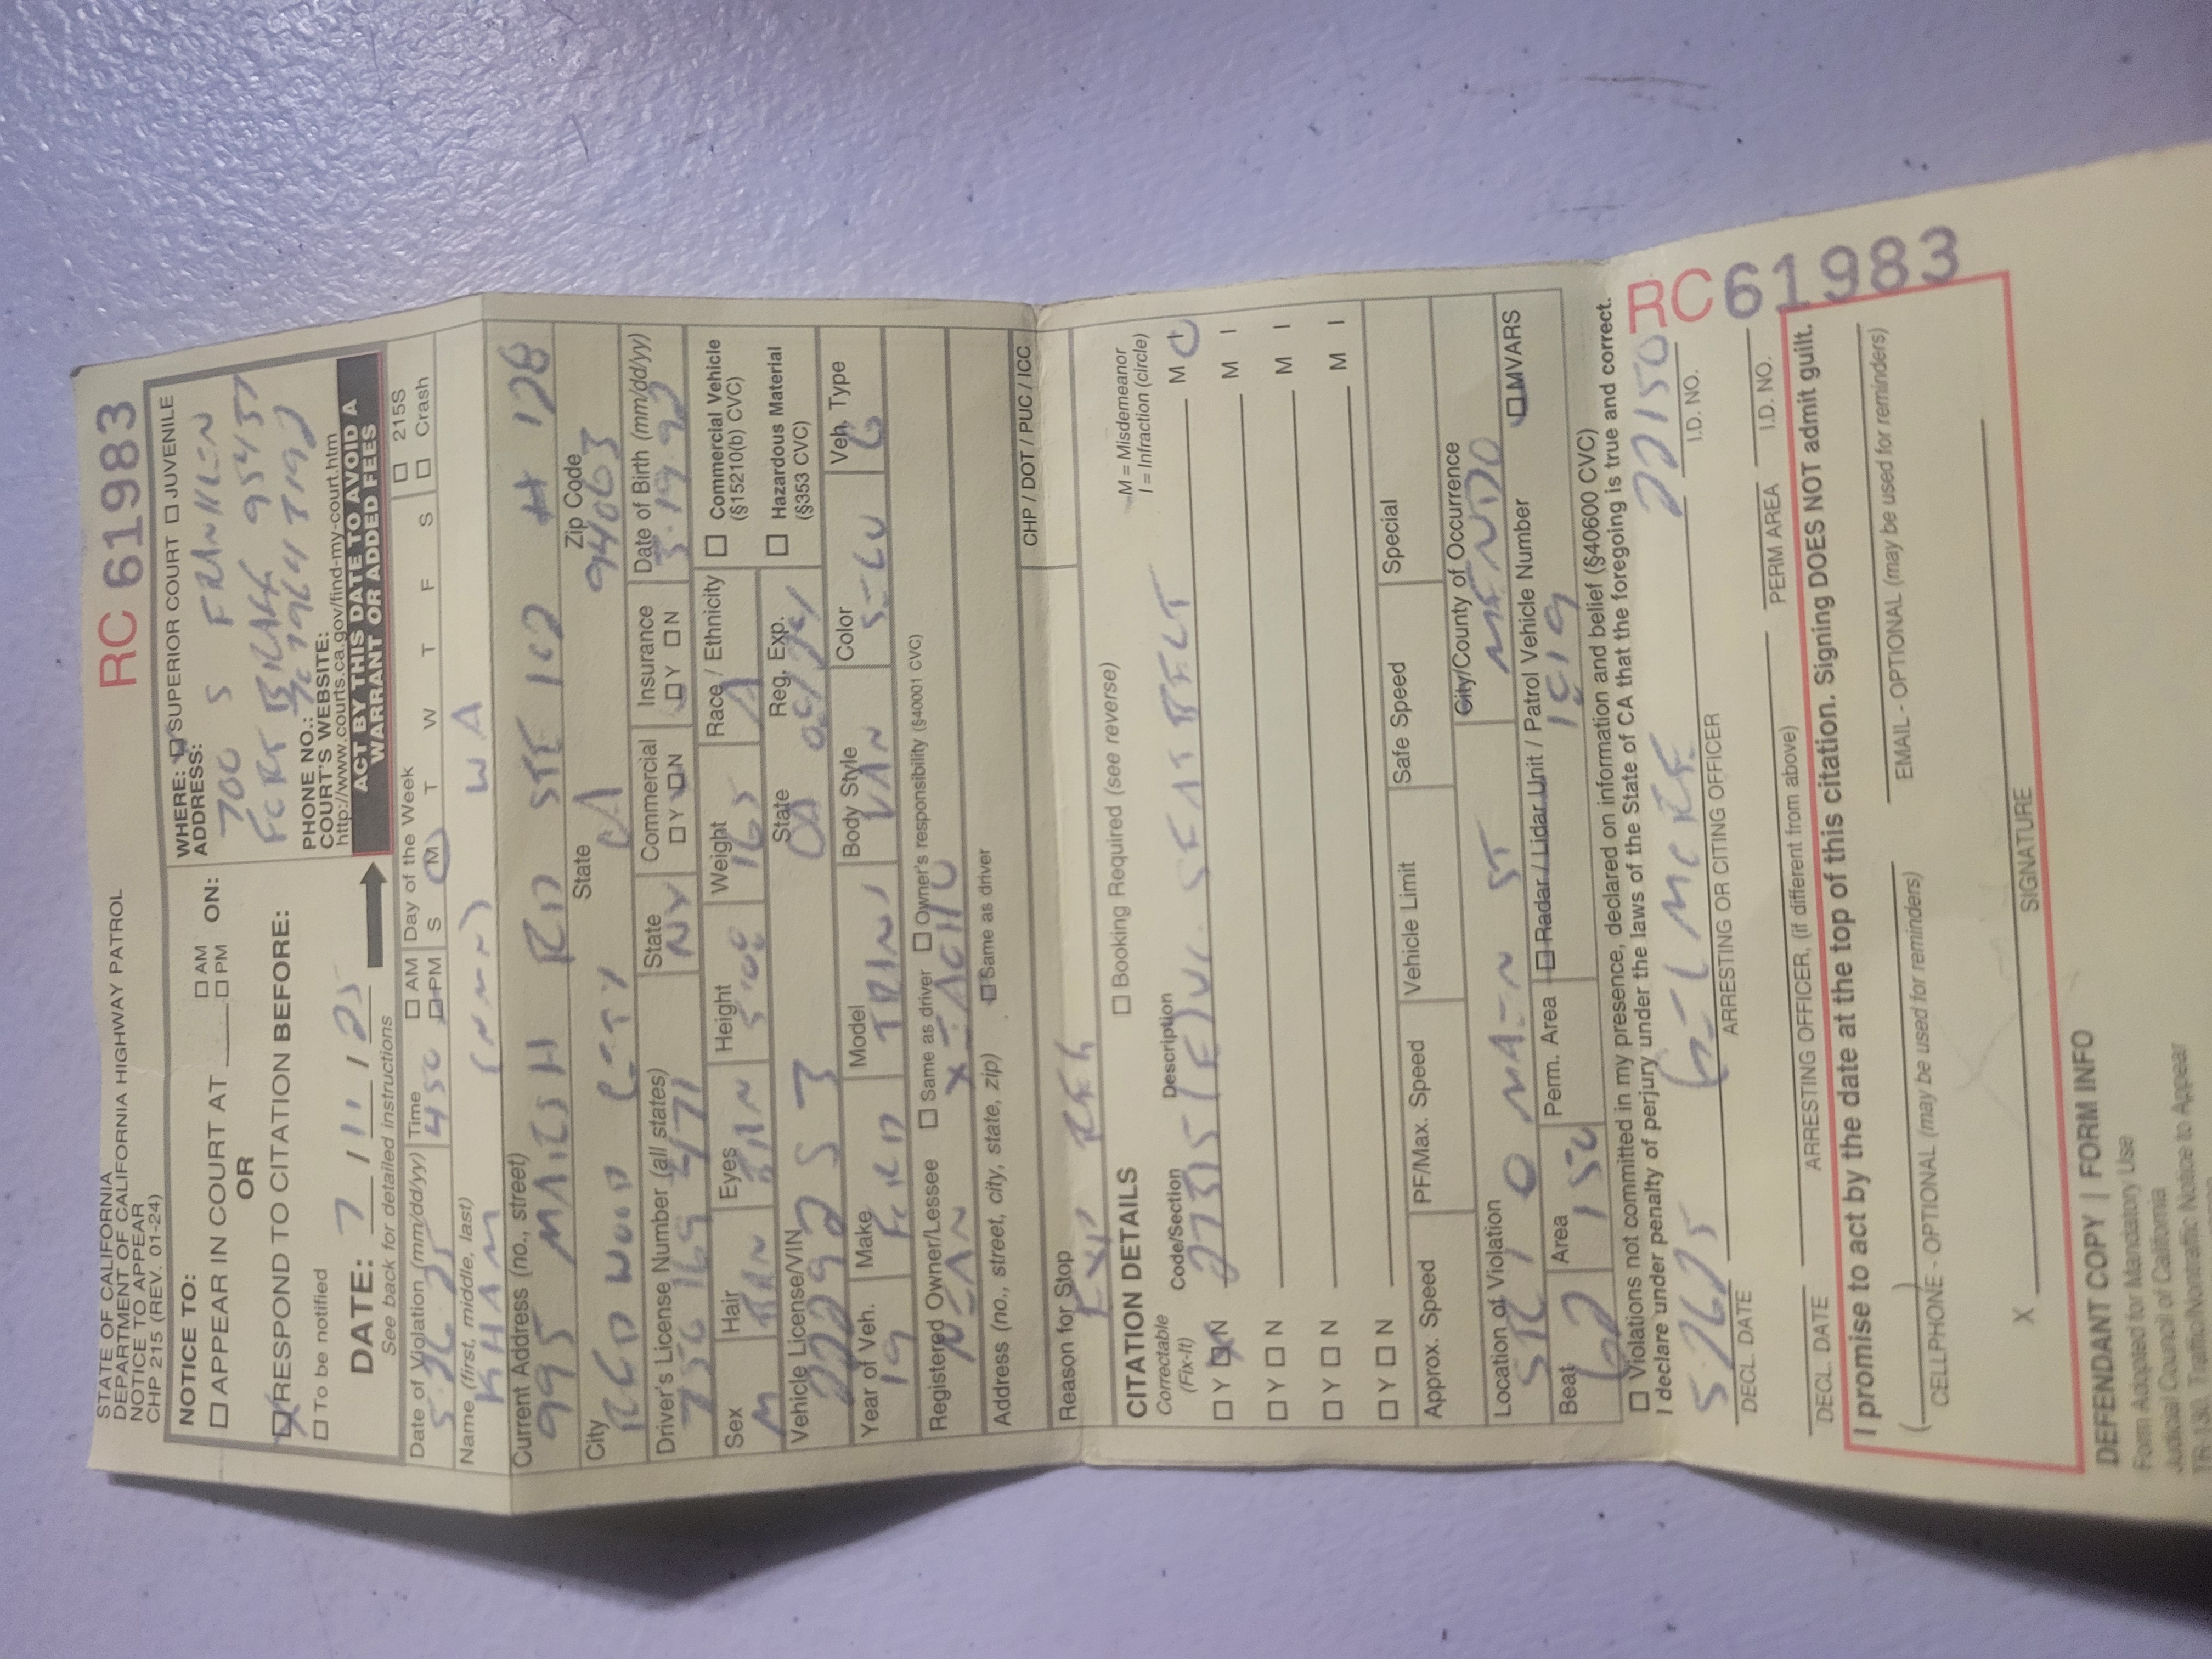 STATE OF CALIFORNIA
DEPARTMENT OF CALIFORNIA HIGHWAY PATROL
NOTICE TO APPEAR
CHP 215 (REV. 01-24)
RC 61983
NOTICE TO:
APPEAR IN COURT AT ____ AM PM ON:
OR
RESPOND TO CITATION BEFORE:
To be notified
DATE: 7 / 11 / 25
See back for detailed instructions
WHERE: SUPERIOR COURT JUVENILE
ADDRESS:
700 S FRANKLIN
FORT BRAGG 95437
PHONE NO.: 707 964 3192
COURT'S WEBSITE:
http://www.courts.ca.gov/find-my-court.htm
ACT BY THIS DATE TO AVOID A
WARRANT OR ADDED FEES
Date of Violation (mm/dd/yy) Time AM PM Day of the Week 215S
5-26-25 450 S M T W T F S Crash
Name (first, middle, last)
KHAM (NMN) WA
Current Address (no., street)
995 MARSH RD STE 102 # 128
City State Zip Code
REDWOOD CITY CA 94063
Driver's License Number (all states) State Commercial Insurance Date of Birth (mm/dd/yy)
750 169 471 NY Y N Y N 3-19-92
Sex Hair Eyes Height Weight Race / Ethnicity Commercial Vehicle
(§15210(b) CVC)
M BRN BRN 165 A
Hazardous Material
(§353 CVC)
Vehicle License/VIN State Reg. Exp.
22292S3 CA
Year of Veh. Make Model Body Style Color Veh. Type
19 FORD TRANS VAN SILV G
Registered Owner/Lessee Same as driver Owner's responsibility (§40001 CVC)
NIAN XIACHU
Address (no., street, city, state, zip) Same as driver
CHP / DOT / PUC / ICC
Reason for Stop
EXP REG
CITATION DETAILS Booking Required (see reverse) M = Misdemeanor
I = Infraction (circle)
Correctable
(Fix-It) Code/Section Description
Y N 27315(E) VC SEATBELT M I
Y N M I
Y N M I
Y N M I
Approx. Speed PF/Max. Speed Vehicle Limit Safe Speed Special
Location of Violation City/County of Occurrence
SR 1 @ MAIN ST MENDO
Beat Area Perm. Area Radar / Lidar Unit / Patrol Vehicle Number MVARS
62 150 1519
Violations not committed in my presence, declared on information and belief (§40600 CVC)
I declare under penalty of perjury under the laws of the State of CA that the foregoing is true and correct.
5-26-25 GILMORE 22150
DECL. DATE ARRESTING OR CITING OFFICER I.D. NO.
DECL. DATE ARRESTING OFFICER, (if different from above) PERM AREA I.D. NO.
RC61983
I promise to act by the date at the top of this citation. Signing DOES NOT admit guilt.
( )
CELLPHONE - OPTIONAL (may be used for reminders) EMAIL - OPTIONAL (may be used for reminders)
X
SIGNATURE
DEFENDANT COPY | FORM INFO
Form Adopted for Mandatory Use
Judicial Council of California
TR-130, Traffic/Nontraffic Notice to Appear